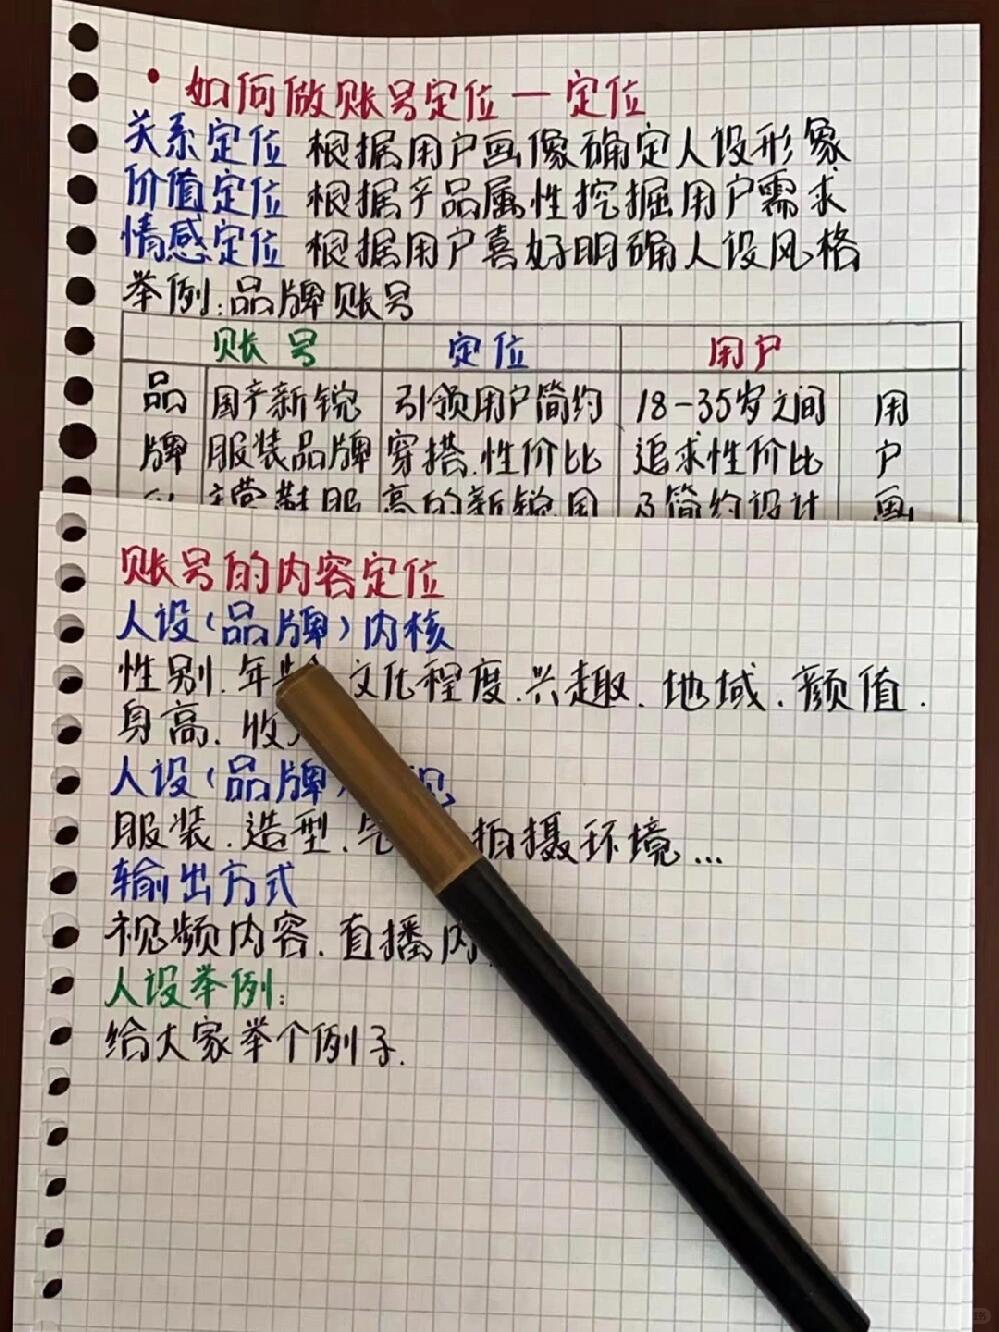 • 如何做账号定位一定位
关系定位 根据用户画像确定人设形象
价值定位 根据产品属性挖掘用户需求
情感定位 根据用户喜好明确人设风格
举例:品牌账号
账号 定位 用户
品 国产新锐 引领用户简约 18-35岁之间 用
牌 服装品牌 穿搭.性价比 追求性价比 户
主营鞋服 高的新锐用 及简约设计 画
账号的内容定位
人设(品牌)内核
性别.年龄 文化程度.兴趣.地域.颜值.
身高.收
人设(品牌)
服装.造型. 拍摄环境...
输出方式
视频内容.直播内
人设举例:
给大家举个例子.